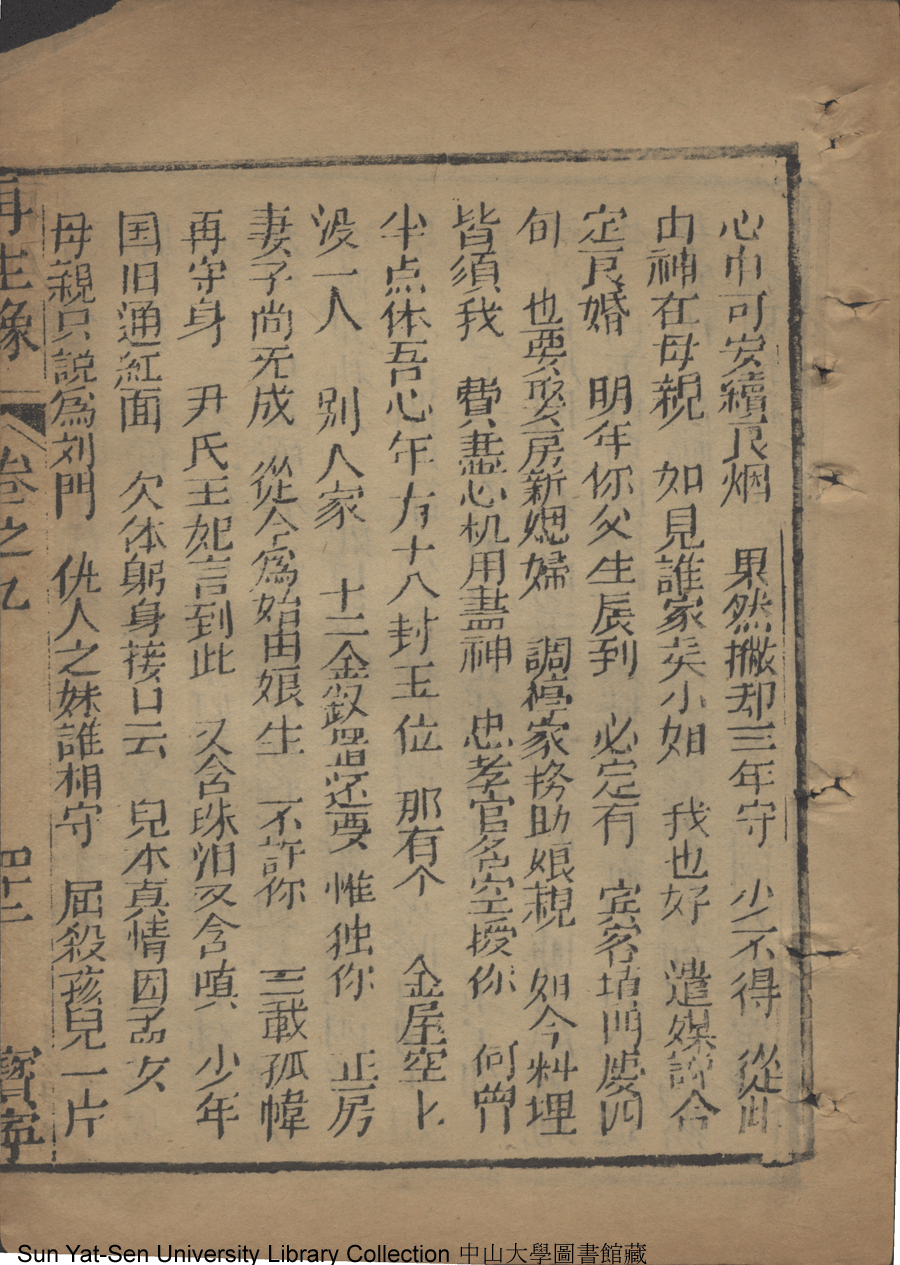 心中可安續良烟　果然撇却三年守　少不得　從此
由神在母親　如見誰家美小如　我也好　遣媒說合
定良婚　明年你父生辰到　必定有　宾客堵門慶四
旬　也要娶房新媳婦　調停家務助娘親　如今料理
皆須我　費盡心机用盡神　忠孝官名空授你　何曾
半点体吾心年方十八封王位　那有个　金屋空上
没一人　別人家　十二金釵還要　惟独你　正房
妻子尚无成　從今為始由娘生　不許你　三載孤幃
再守身　尹氏王妃言到此　又含珠泪又含嗔　少年
国旧通紅面　欠体躬身接口云　兒本真情因孟女
母親只說為刘門　仇人之妹誰相守　屈殺孩兒一片
再生緣　卷之九　四十二　寶寧
Sun Yat-Sen University Library Collection 中山大學圖書館藏